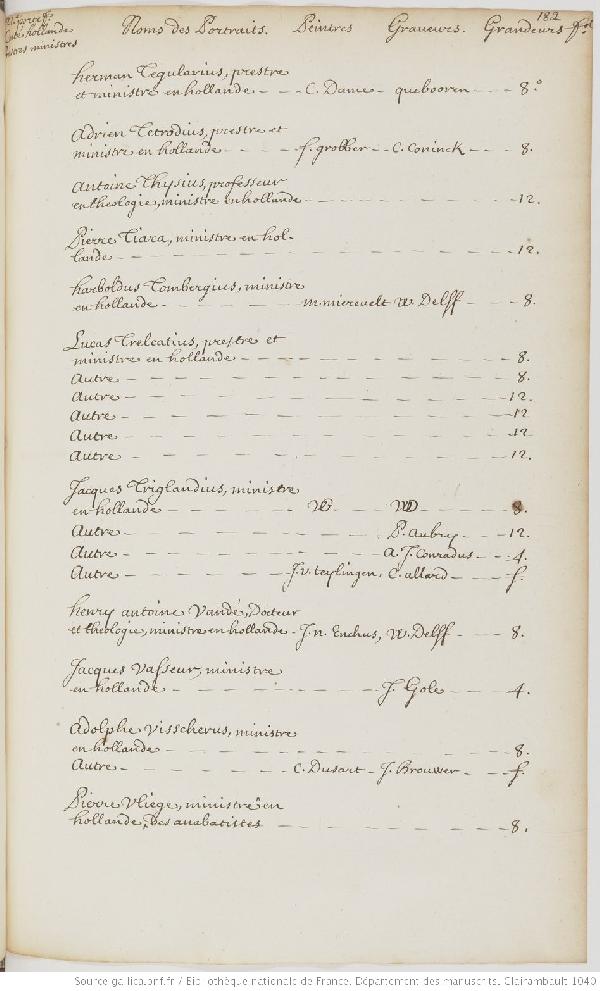 182
hollande
autres ministres
Noms des Portraits. Peintres Graveurs. Grandeurs
herman Tegularius, prestre
et ministre en hollande - - C. Dame - quebooren - - - 8.º
Adrien Tetrodius, prestre et
ministre en hollande - - - - f. grebber - C. Coninck - - - 8.
Antoine Thysius, professeur
en theologie, ministre en hollande - - - - - - - 12.
Pierre Tiara, ministre en hol-
lande - - - - - - - - - - - 12.
harboldus Tombergius, ministre
en hollande - - - - - m. mierevelt W. Delff - - - 8.
Lucas Trelcatius, prestre et
ministre en hollande - - - - - - - - 8.
Autre - - - - - - - - - - 8.
Autre - - - - - - - - - - 12.
Autre - - - - - - - - - - 12
Autre - - - - - - - - - - 12
Autre - - - - - - - - - - 12.
Jacques Triglandius, ministre
en hollande - - - - - - W - - - 8.
Autre - - - - - - - P. Aubry - - 12.
Autre - - - - - - - A. J. Conradus - - 4.
Autre - - - - - J. v. teylingen, C. allard - - - f.
henry antoine Vandé, Docteur
et theologie, ministre en hollande - J. n. Enchus, W. Delff - - - 8.
Jacques Vasseur, ministre
en hollande - - - - - - - J. Gole - - - 4.
Adolphe Visscherus, ministre
en hollande - - - - - - - - - - 8.
Autre - - - - - - C. Dusart - J. Brouwer - - f.
Pierre Vliege, ministre en
hollande, des anabatistes - - - - - - - 8.
Source gallica.bnf.fr / Bibliothèque nationale de France. Département des manuscrits. Clairambault 1040